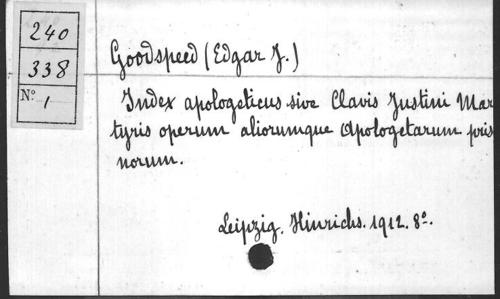 240
338
No. 1
Goodspeed (Edgar J.)
Index apologeticus sive Clavis Justini Mar
tyris operum aliorumque Apologetarum pris
norum.
Leipzig. Hinrichs. 1912. 8o.